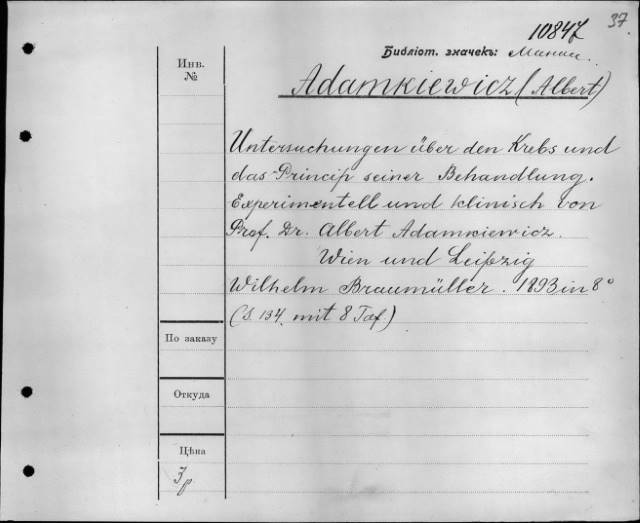 37.
10847
Библіот. значекъ:
Инв.
№
Adamkiewicz (Albert)
Untersuchungen über den Krebs und
das Princip seiner Behandlung.
Experimentell und klinisch von
Prof. Dr. Albert Adamkiewicz.
Wien und Leipzig
Wilhelm Braumüller. 1893 in 8°
(S. 134. mit 8 Taf.)
По заказу
Откуда
Цѣна
3 р